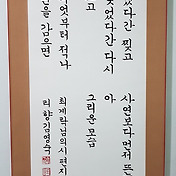 썼다간 찢고
찢었다간 다시
고
엇부터 적나
을 감으면
사연보다 먼저 뜬
아
그리운 모습
최계락님의 시 편지
리향 김영숙